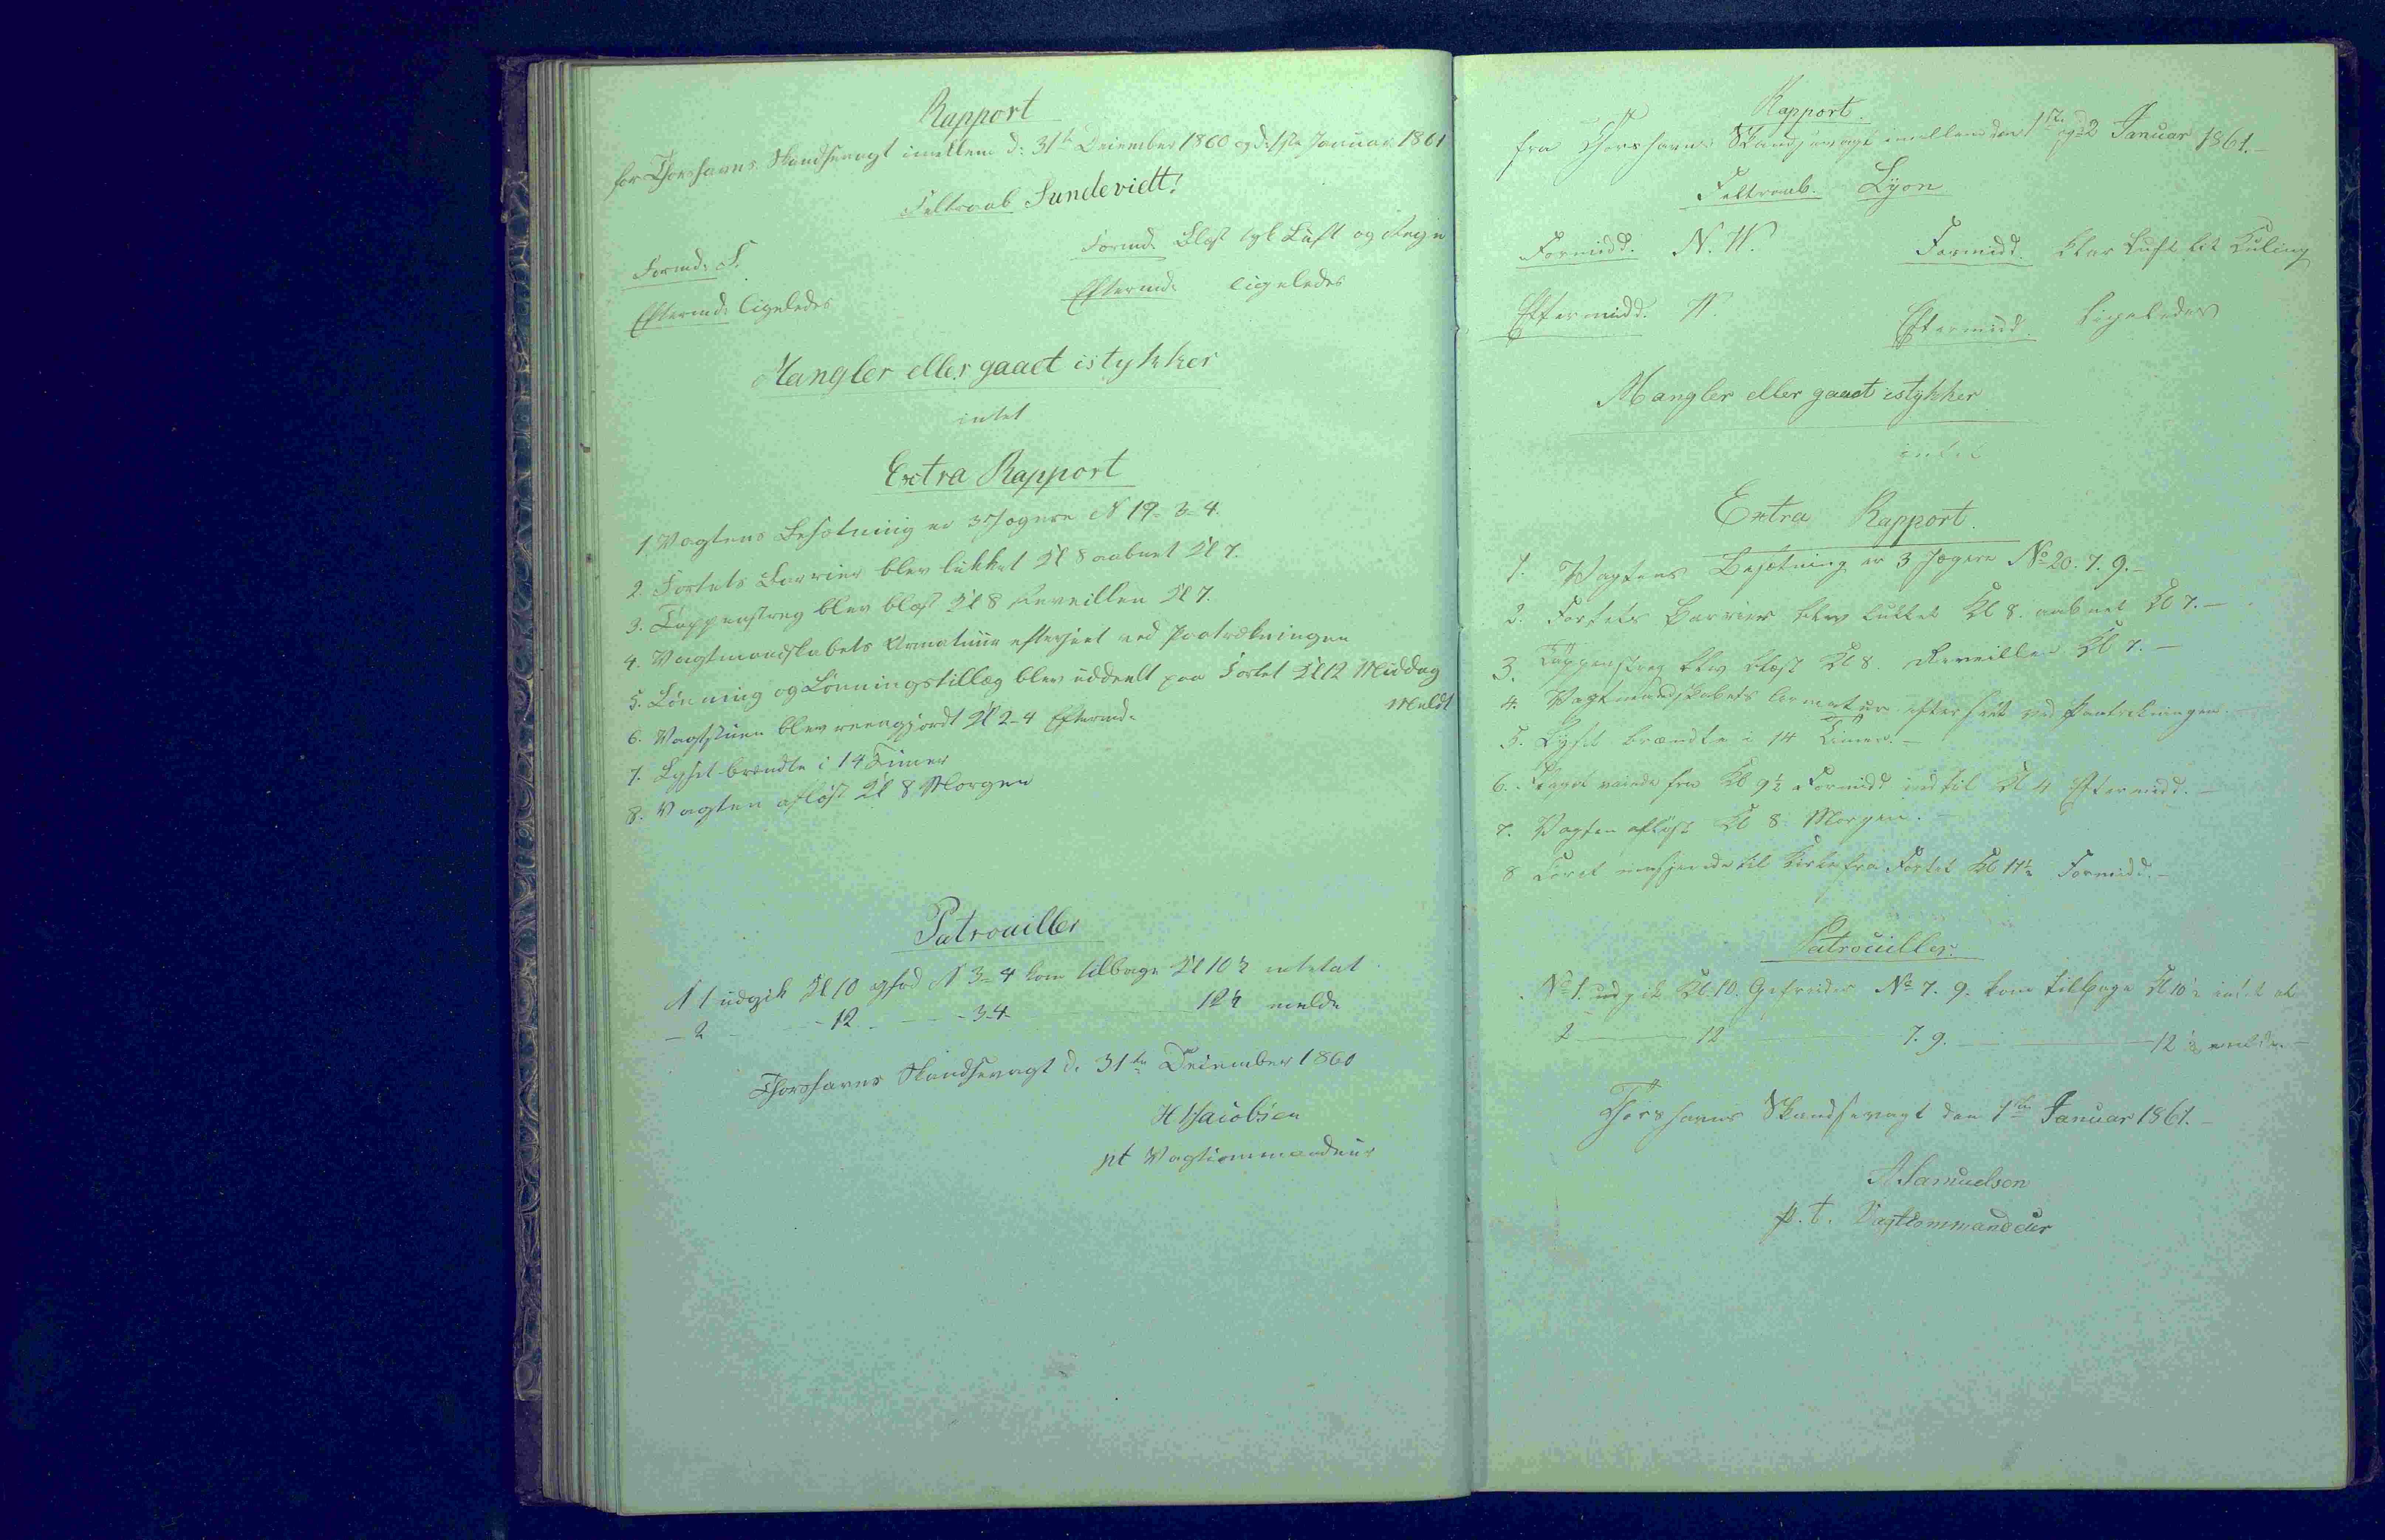 Rapport
for Thorshavns Skandsevagt imellem d: 31te December 1860 og d: 1ste Januar 1861
Feltraab Sundeviett!
Formd: S.
Formd: Blæst tyk Luft og Regn
Eftermd: ligeledes
Eftermd: ligeledes
Mangler eller gaaet istykker
intet
Extra Rapport
1. Vagtens Besætning er 3 Jægere N 19-3-4.
2. Fortets Barrier blev lukket Kl 8 aabnet Kl 7.
3. Tappenstreg blev blæst Kl 8 Reveillen Kl 7.
4. Vagtmandskabets Armatuur efterseet ved Paatrækningen
5. Lønning og Lønningstillæg blev uddeelt paa Fortet Kl 12 Middag
6. Vagtstuen blev reengjordt Kl 2-4 Eftermd:
7. Lyset brændte i 14 Timer
8. Vagten afløst Kl 8 Morgen
Patrouiller
N 1 udgik Kl 10 N 3-4 kom tilbage Kl 10½ intet at
— 2 — 12 — 3-4 — 12½ melde
Thorshavns Skandsevagt d: 31te December 1860
H Jacobsen
pt Vagtcommandeur
Rapport.
fra Thorshavns Skandsevagt imellem den 1ste og d 2 Januar 1861.—
Feltraab. Lyon
Formidd. N.W.
Formidd. Klar Luft lit Kuling
Eftermidd. W.
Eftermidd. ligeledes
Mangler eller gaaet istykker
intet
Extra Rapport.
1. Vagtens Besætning er 3 Jægere No 20. 7. 9.—
2. Fortets Barrier blev lukket Kl 8. aabnet Kl 7.—
3. Tappenstreg blev blæst Kl 8. Reveillen Kl 7.—
4. Vagtmandskabets Armatur efterseet ved Paatrækningen.—
5. Lyset brændte i 14 Timer.—
6. Flaget vaiede fra Kl 9½ Formidd indtil Kl 4 Eftermidd.—
7. Vagten afløst Kl 8 Morgen.—
8 til Kirke fra Fortet Kl 11½ Formidd.—
Patrouiller.
No 1. udgik Kl. 10. Gefreider No 7. 9. kom tilbage Kl 10½ intet at
2 — 12 — 7. 9. — 12½ melde.—
Thorshavns Skandsevagt den 1ste Januar 1861.—
Samuelsen
p. t. Vagtkommandeur